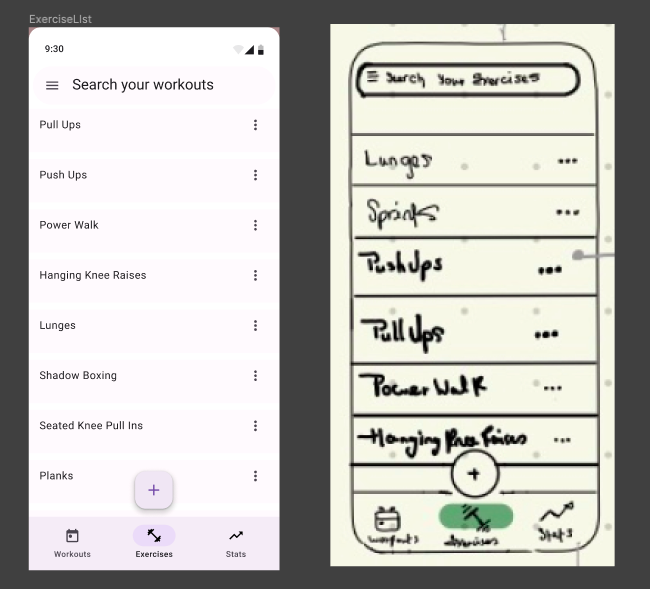 ExerciseLIst
9:30
Search your workouts
Pull Ups
Push Ups
Power Walk
Hanging Knee Raises
Lunges
Shadow Boxing
Seated Knee Pull Ins
Planks
+
Workouts Exercises Stats
Search Your Exercises
Lunges
Sprints
Push Ups
Pull Ups
Power Walk
Hanging Knee Raises
+
Workouts Exercises Stats